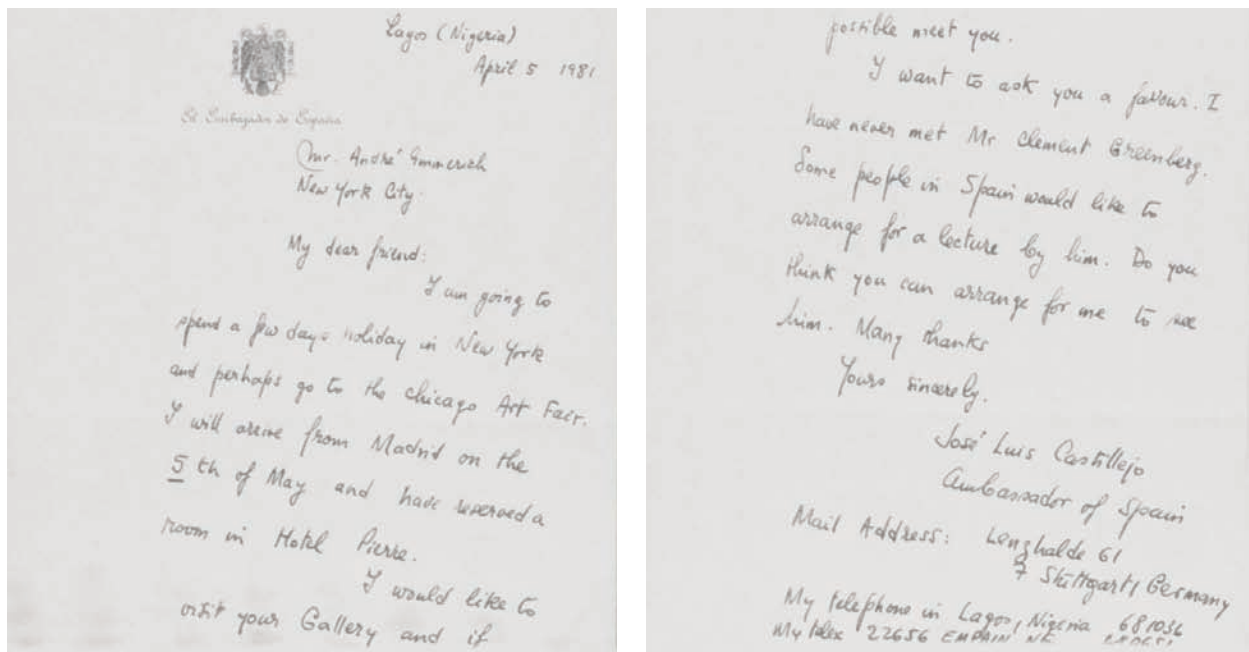 Lagos (Nigeria)
April 5 1981
El Embajador de España
Mr. André Emmerich
New York City.
My dear friend:
I am going to
spend a few days holiday in New York
and perhaps go to the Chicago Art Fair.
I will arrive from Madrid on the
5th of May and have reserved a
room in Hotel Pierre.
I would like to
visit your Gallery and if
possible meet you.
I want to ask you a favour. I
have never met Mr Clement Greenberg.
Some people in Spain would like to
arrange for a lecture by him. Do you
think you can arrange for me to see
him. Many thanks
Yours sincerely.
José Luis Castillejo
Ambassador of Spain
Mail Address: Lenzhalde 61
7 Stuttgart 1 Germany
My telephone in Lagos, Nigeria 681036
My telex 22656 EMPAIN